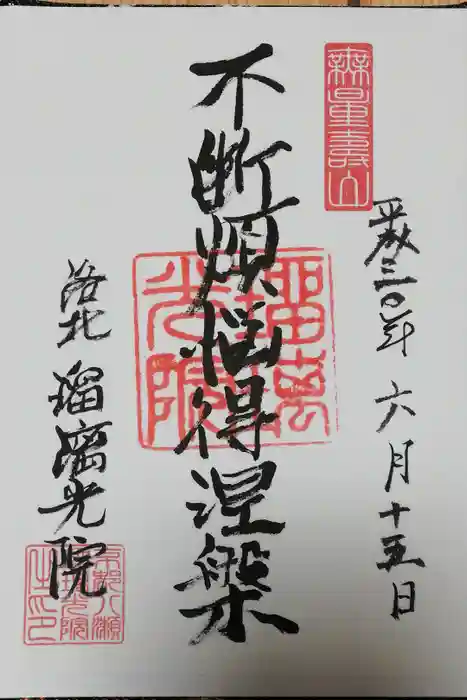 無量壽山
平成三〇年 六月十五日
不断煩悩得涅槃
瑠璃光院
洛北 瑠璃光院
京都八瀬